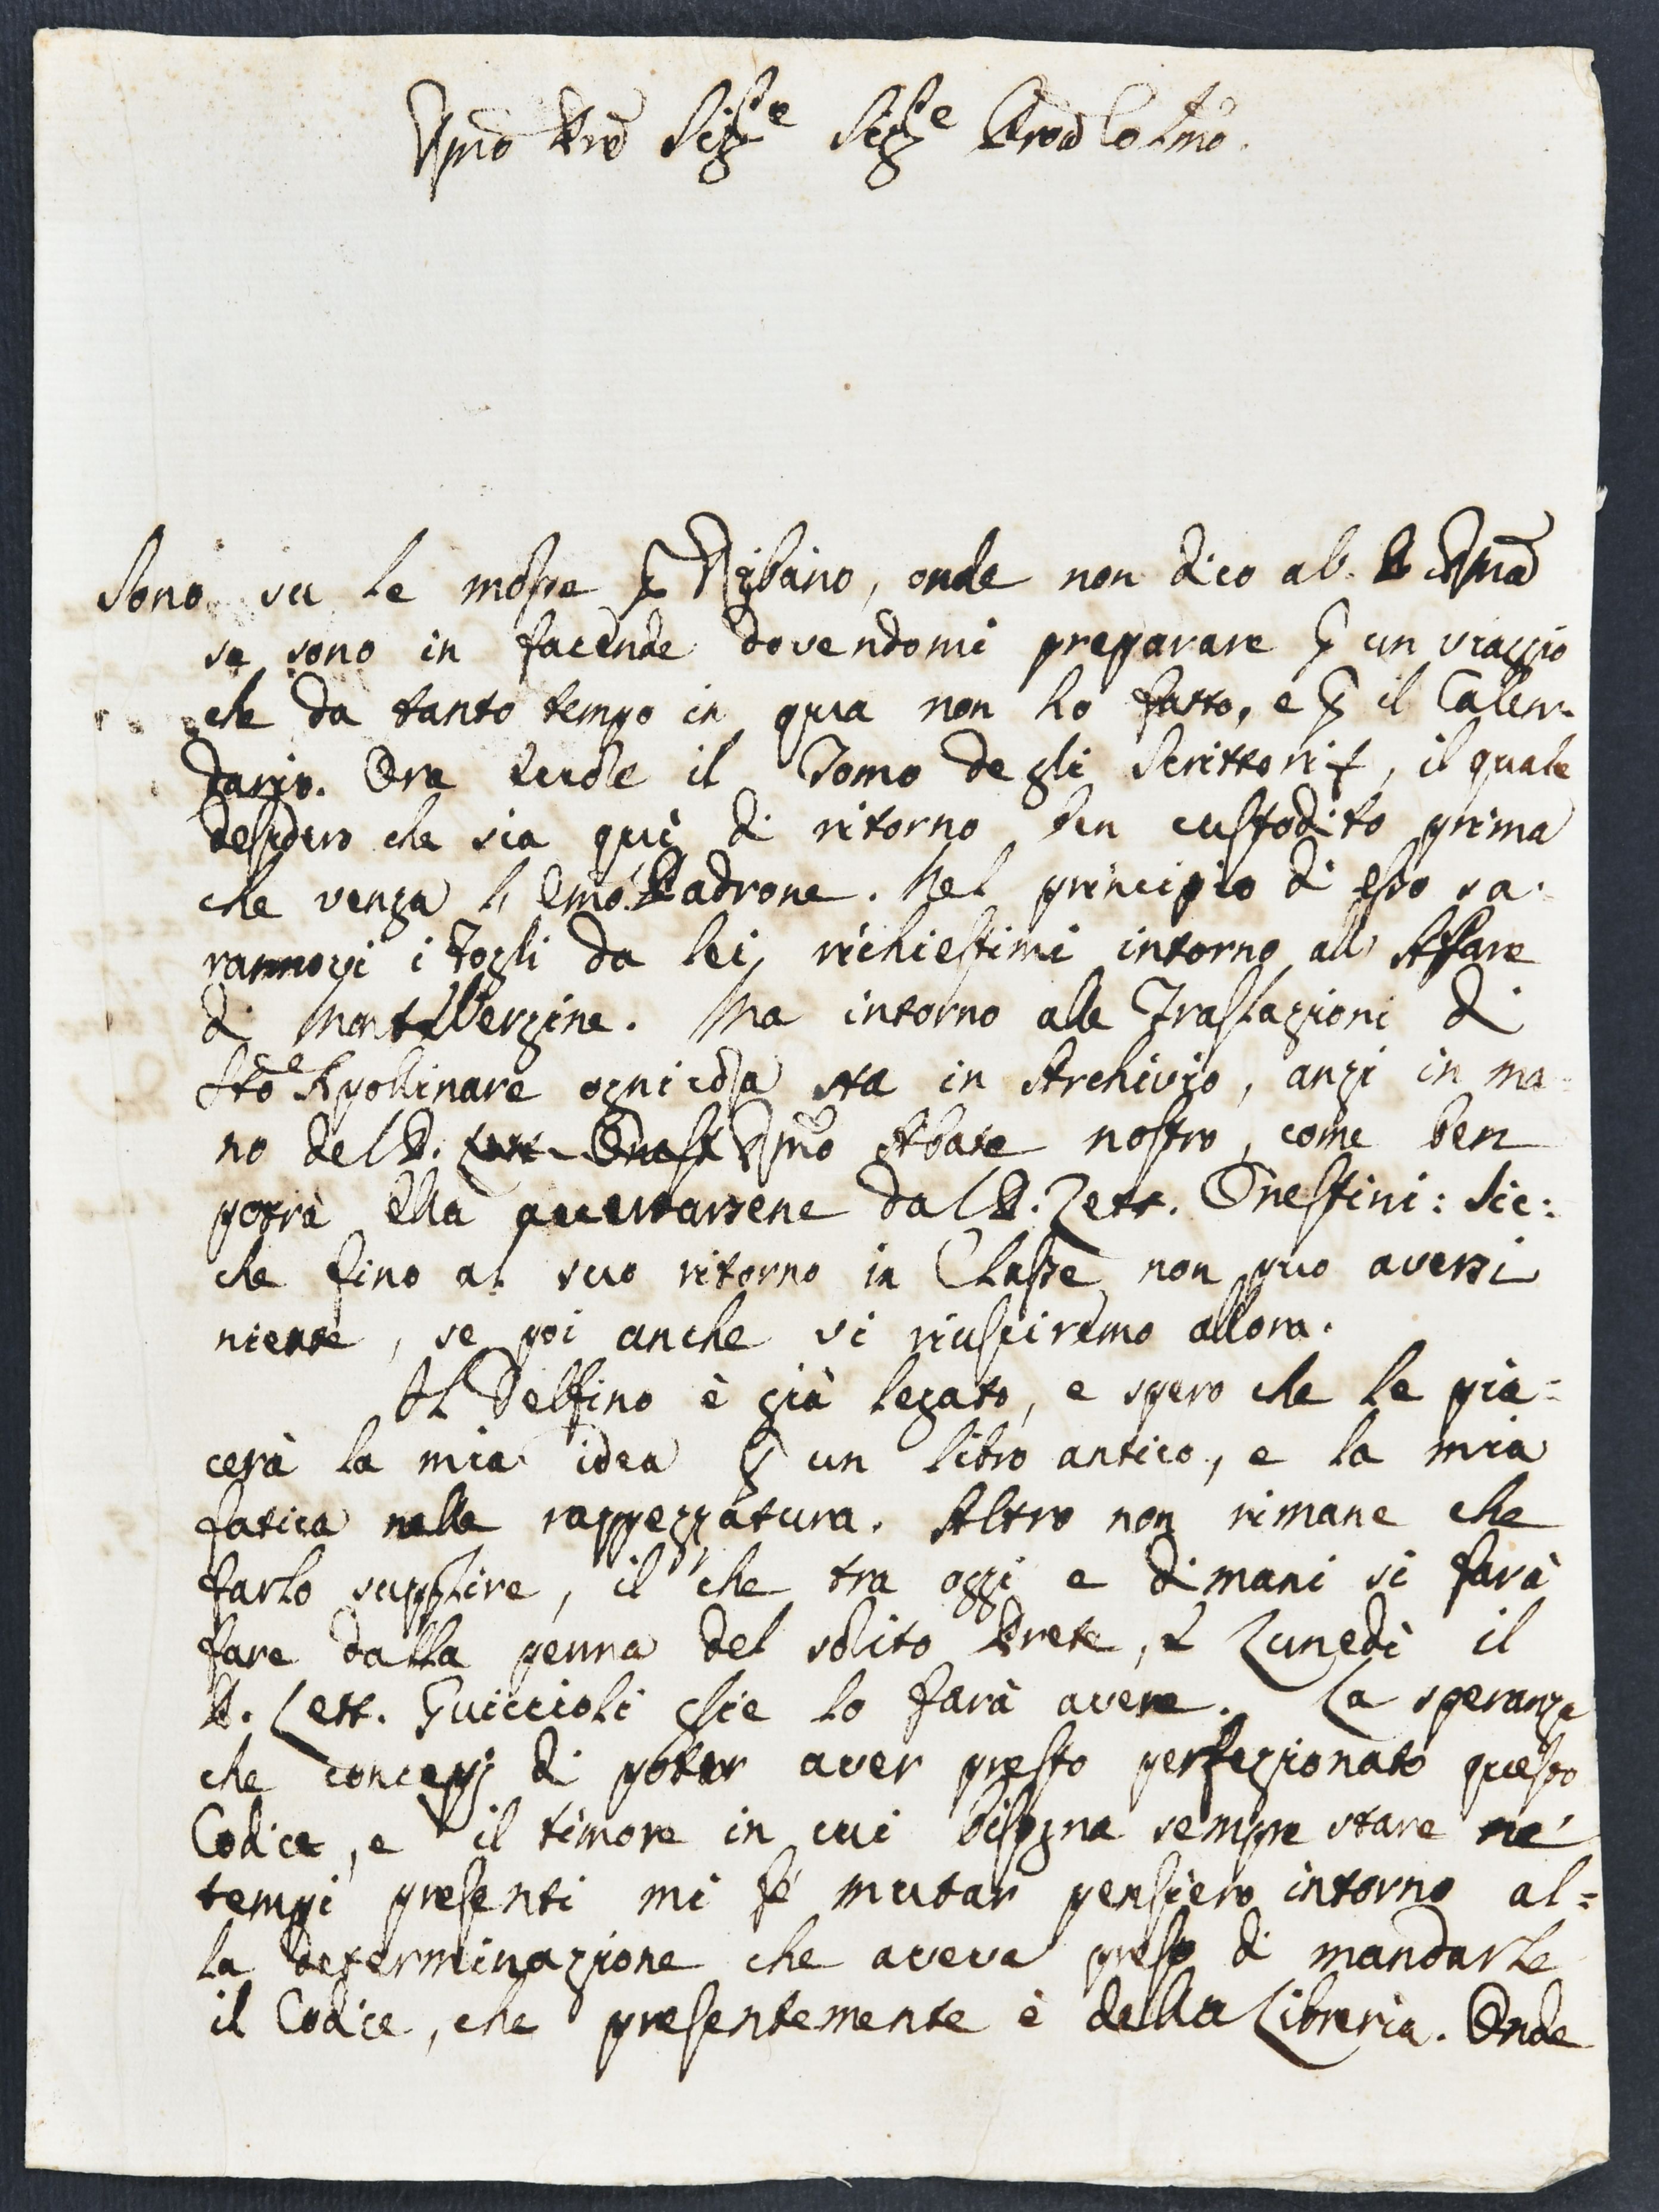 Rmo Pre Sigre Sigre Prone Colmo.
Sono su le mosse p Urbano, onde non dico al. P. Rmo
se sono in facende dovendomi preparare p un viaggio
che da tanto tempo in qua non ho fatto, e p il Calen-
dario. Ora il Tomo degli Scrittori, il quale
desidero che sia quì di ritorno ben custodito prima
che venga l Emo Padrone. Nel principio di esso sa-
rannovi i Fogli da lei richiestimi intorno all Affare
di Monte Vergine. Ma intorno alle Traslazioni di
Sto Apollinare ogni cosa sta in Archivio, anzi in ma-
no del P. Rmo Abate nostro, come ben
potrà ella accertarsene dal P. Lett. Onestini: Sic:
che fino al suo ritorno in Classe non può aversi
niente, se poi anche vi riusciremo allora.
Il Delfino è già legato, e spero che le pia=
cerà la mia idea p un libro antico, e la mia
fatica nella rappezzatura. Altro non rimane che
farlo supplire, il che tra oggi e dimani si farà
fare dalla penna del solito Prete, e Lunedì il
P. Lett. Guiccioli glie lo farà avere. La speranza
che concepj di poter aver presto perfezionato questo
Codice, e il timore in cui bisogna sempre stare ne'
tempi presenti mi fé mutar pensiero intorno al=
la determinazione che aveva preso di mandarle
il Codice, che presentemente è della Libreria. Onde